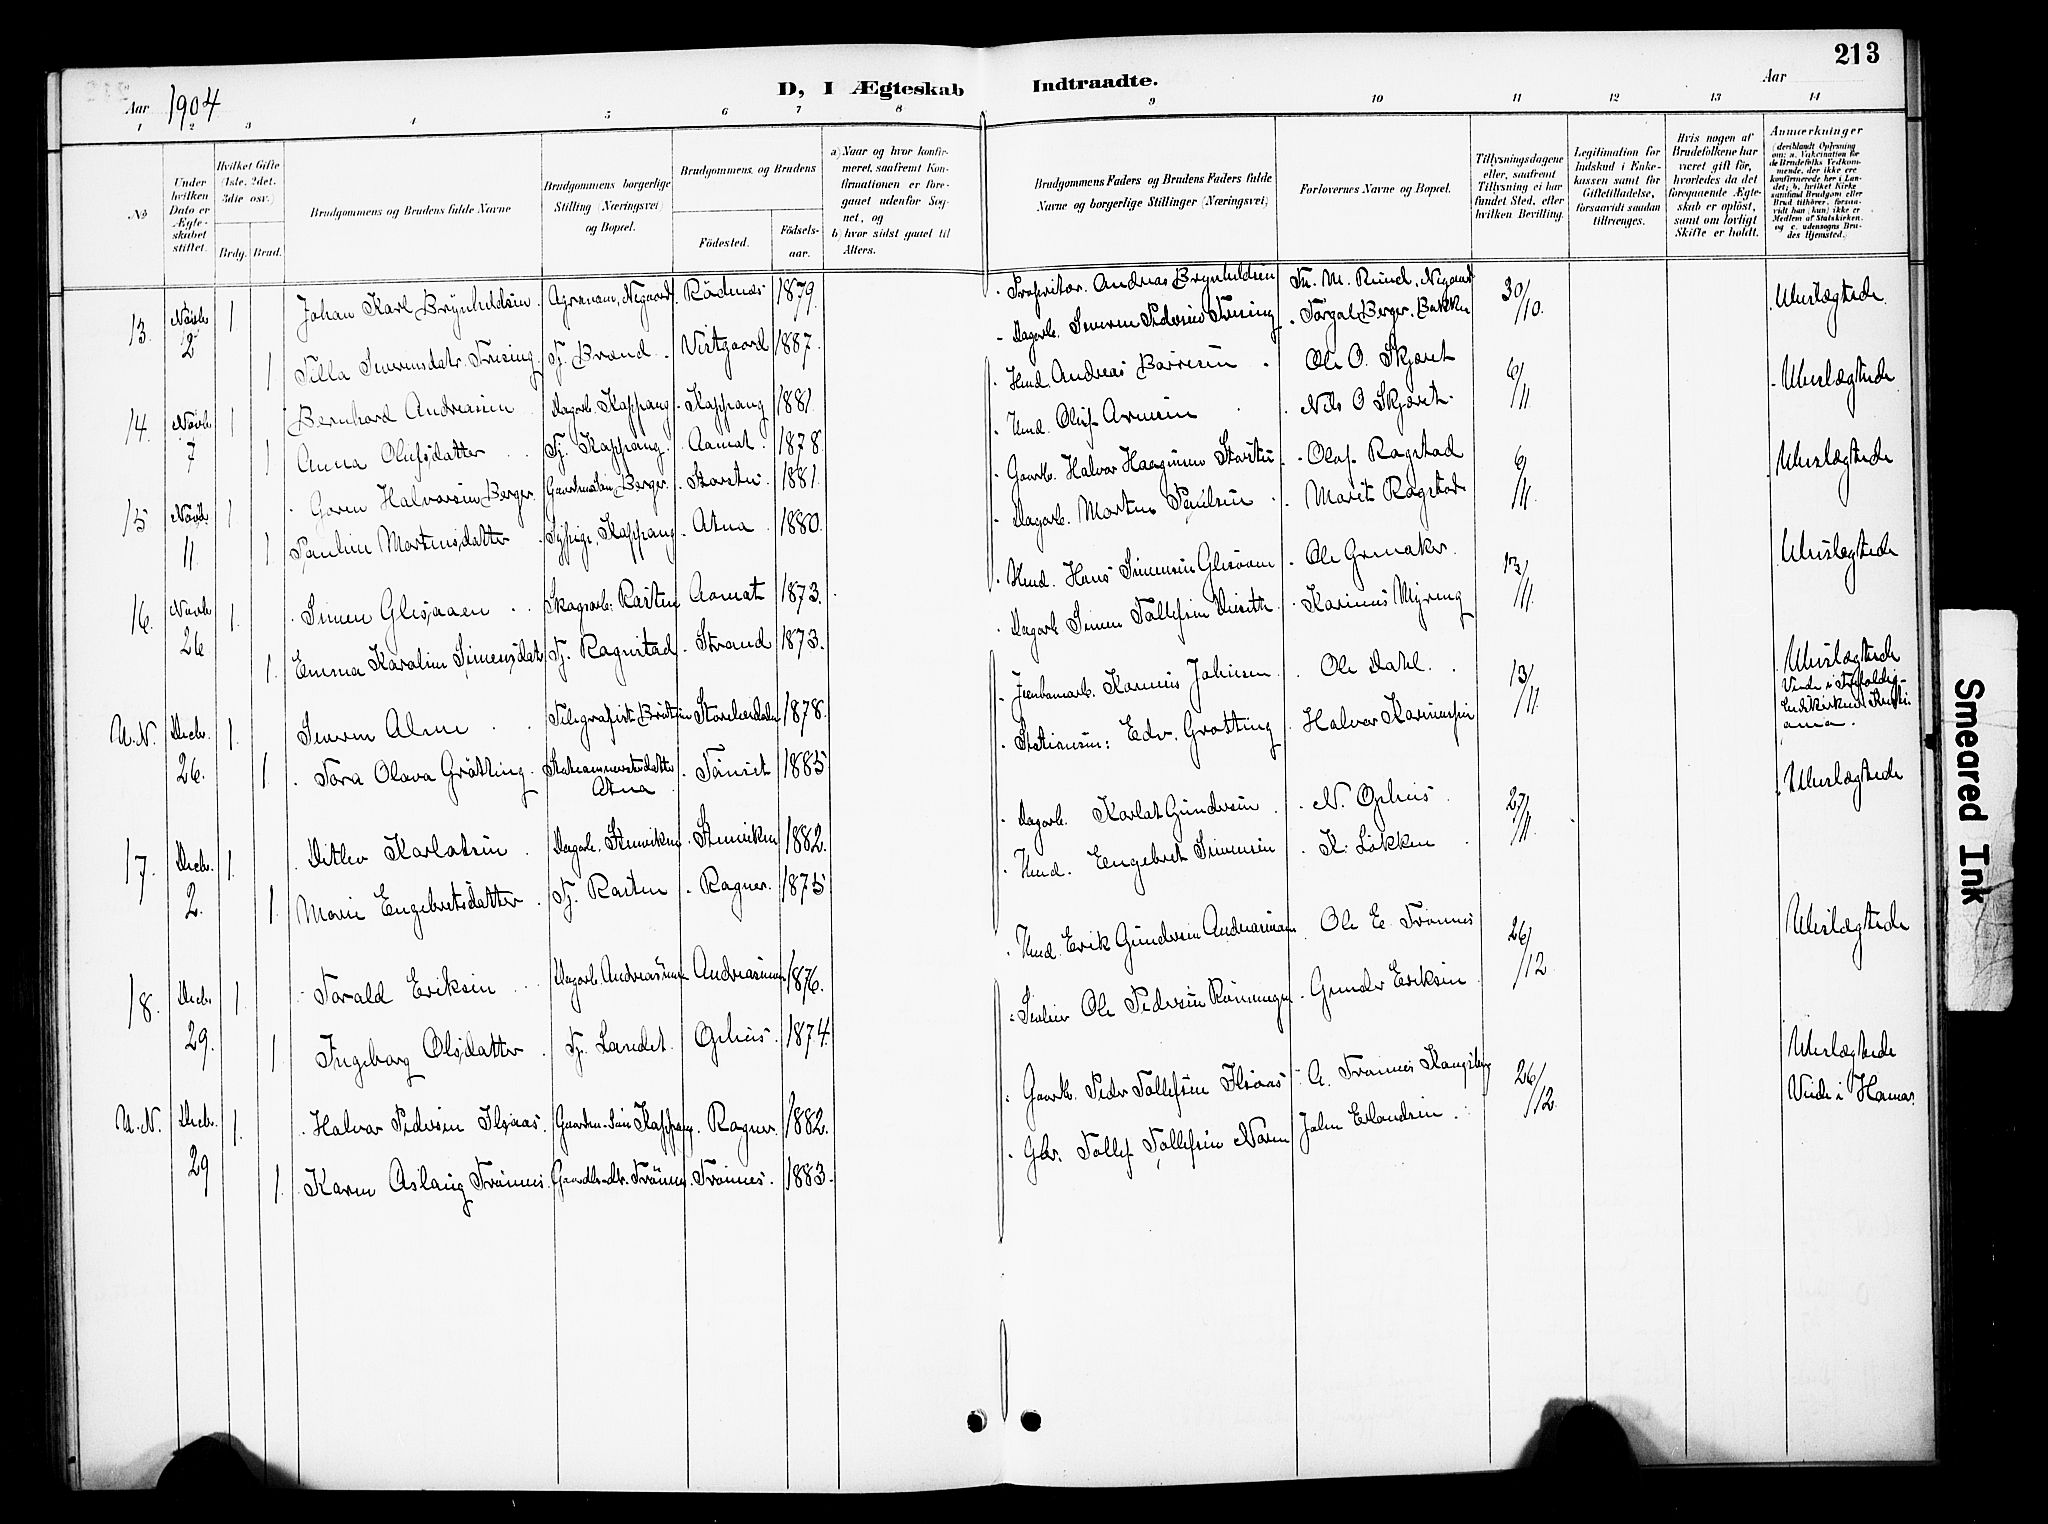 213
D, I Ægteskab Indtraadte.
Aar 1904
Aar
1 2 3 4 5 6 7 8 9 10 11 12 13 14
No
Under hvilken Dato er Ægteskabet stiftet.
Hvilket Gifte (1ste, 2det, 3die osv.)
Brdg. Brud.
Brudgommens og Brudens fulde Navne
Brudgommens borgerlige Stilling (Næringsvei) og Bopæl.
Brudgommens og Brudens
Fødested.
Fødselsaar.
a) Naar og hvor konfirmeret, saafremt Konfirmationen er foregaaet udenfor Sognet, og
b) hvor sidst gaaet til Alters.
Brudgommens Faders og Brudens Faders fulde Navne og borgerlige Stillinger (Næringsvei)
Forlovernes Navne og Bopæl.
Tillysningsdagene eller, saafremt Tillysning ei har fundet Sted, efter hvilken Bevilling.
Legitimation for Indskud i Enkekassen samt for Giftetilladelse, forsaavidt saadan tiltrænges.
Hvis nogen af Brudefolkene har været gift før, hvorledes da det foregaaende Ægteskab er opløst, samt om lovligt Skifte er holdt.
Anmerkninger (deriblandt Oplysning om: a. Vakcination for de Brudefolks Vedkommende, der ikke ere konfirmerede her i Landet; b. hvilket Kirkesamfund Brudgom eller Brud tilhører, forsaavidt han (hun) ikke er Medlem af Statskirken, og c. udensogns Brudes Hjemsted.)
13. Novbr 2 1 Johan Karl Brynhildsen. Agronom, Negaard. Rödenes 1879. Proprietær. Andreas Brynhildsen Fr. M. Rund, Negaard 30/10. Ubeslægtede.
1 Tilla Severinsdatr. Træsing Tj. Brænd. Vestgaard 1887. Dagarb. Severin Pedersen Træsing. Torgal Berger. Bakken
14. Novbr 7 1 Bernhard Andreassen Dagarb. Kappang. Kappang 1881. Husmd. Andreas Børresen. Ole O. Skjæret 6/11. Ubeslægtede
1 Anna Olufsdatter Tj. Kappang. Aamot. 1878. Husmd. Oluf Arnesen. Nils O Skjæret.
15 Novbr 11. 1 Goren Halvorsen Berger. Gaardmand, Berger. Storstu. 1881. Gaarb. Halvor Haagensen Storstu. Olaf Rogstad 6/11. Ubeslægtede
1 Pauline Mortensdatter Sypige, Kappang. Atna 1880. Dagarb. Morten Paulsen. Marit Rogstad
16. Novbr 26 1. Simen Glesaaen Skogsarb. Rasten Aamot 1873. Husmd. Hans Simensen Glesaaen. Ole Grenaker. 13/11. Ubeslægtede
1. Emma Karoline Simensdat. Tj. Rognstad. Strand 1873. Dagarb Simen Tollefsen Karinus Myreng
U.N. Decbr. 26. 1. Severin Alme Telegrafist Storelvedalen 1878. Jernbanearb. Karinus Johnsen. Ole Dahl. 13/11. Ubeslægtede Viede i Trefoldighedskirken Kristiania.
1. Tora Olava Gröting. Stationsmesterdatter Atna. Tönset 1885 Stationsm: Edv. Grøtting Halvor Karinussen
17. Decbr. 2. 1. Ditlev Karlotsen Dagarb. Stenviken. Stenviken 1882. Dagarb. Karlot Gundersen. N. Ophus. 27/11. Ubeslægtede
1. Marie Engebretsdatter. Tj. Rasten. Ragner. 1875 Husmd. Engebret Simensen. K. Løkken
18. Decbr. 29. 1. Torald Eriksen Dagarb. Andreassmoen Andreassmoen 1876. Husmd. Erik Gundersen Andreassmoen Ole E. Trønnes 26/12. Ubeslægtede
1 Ingeborg Olsdatter. Tj. Landet. Ophus. 1874. Inderst Ole Pedersen Rönningen. Gunder Eriksen
U.N. Decbr. 29 1. Halvor Pedersen Ilsaas. Gaardm.-Søn Kappang. Ragner. 1882. Gaarb. Peder Tollefsen Ilsaas. A. Trønnes Kongsberg 26/12. Ubeslægtede Viede i Hamar.
1. Karen Aslaug Trønnes. Gaardbr-dtr. Trønnes. Trønnes. 1883. Gbr. Tollef Tollefsen Noren John Erlandsen.
Smeared Ink